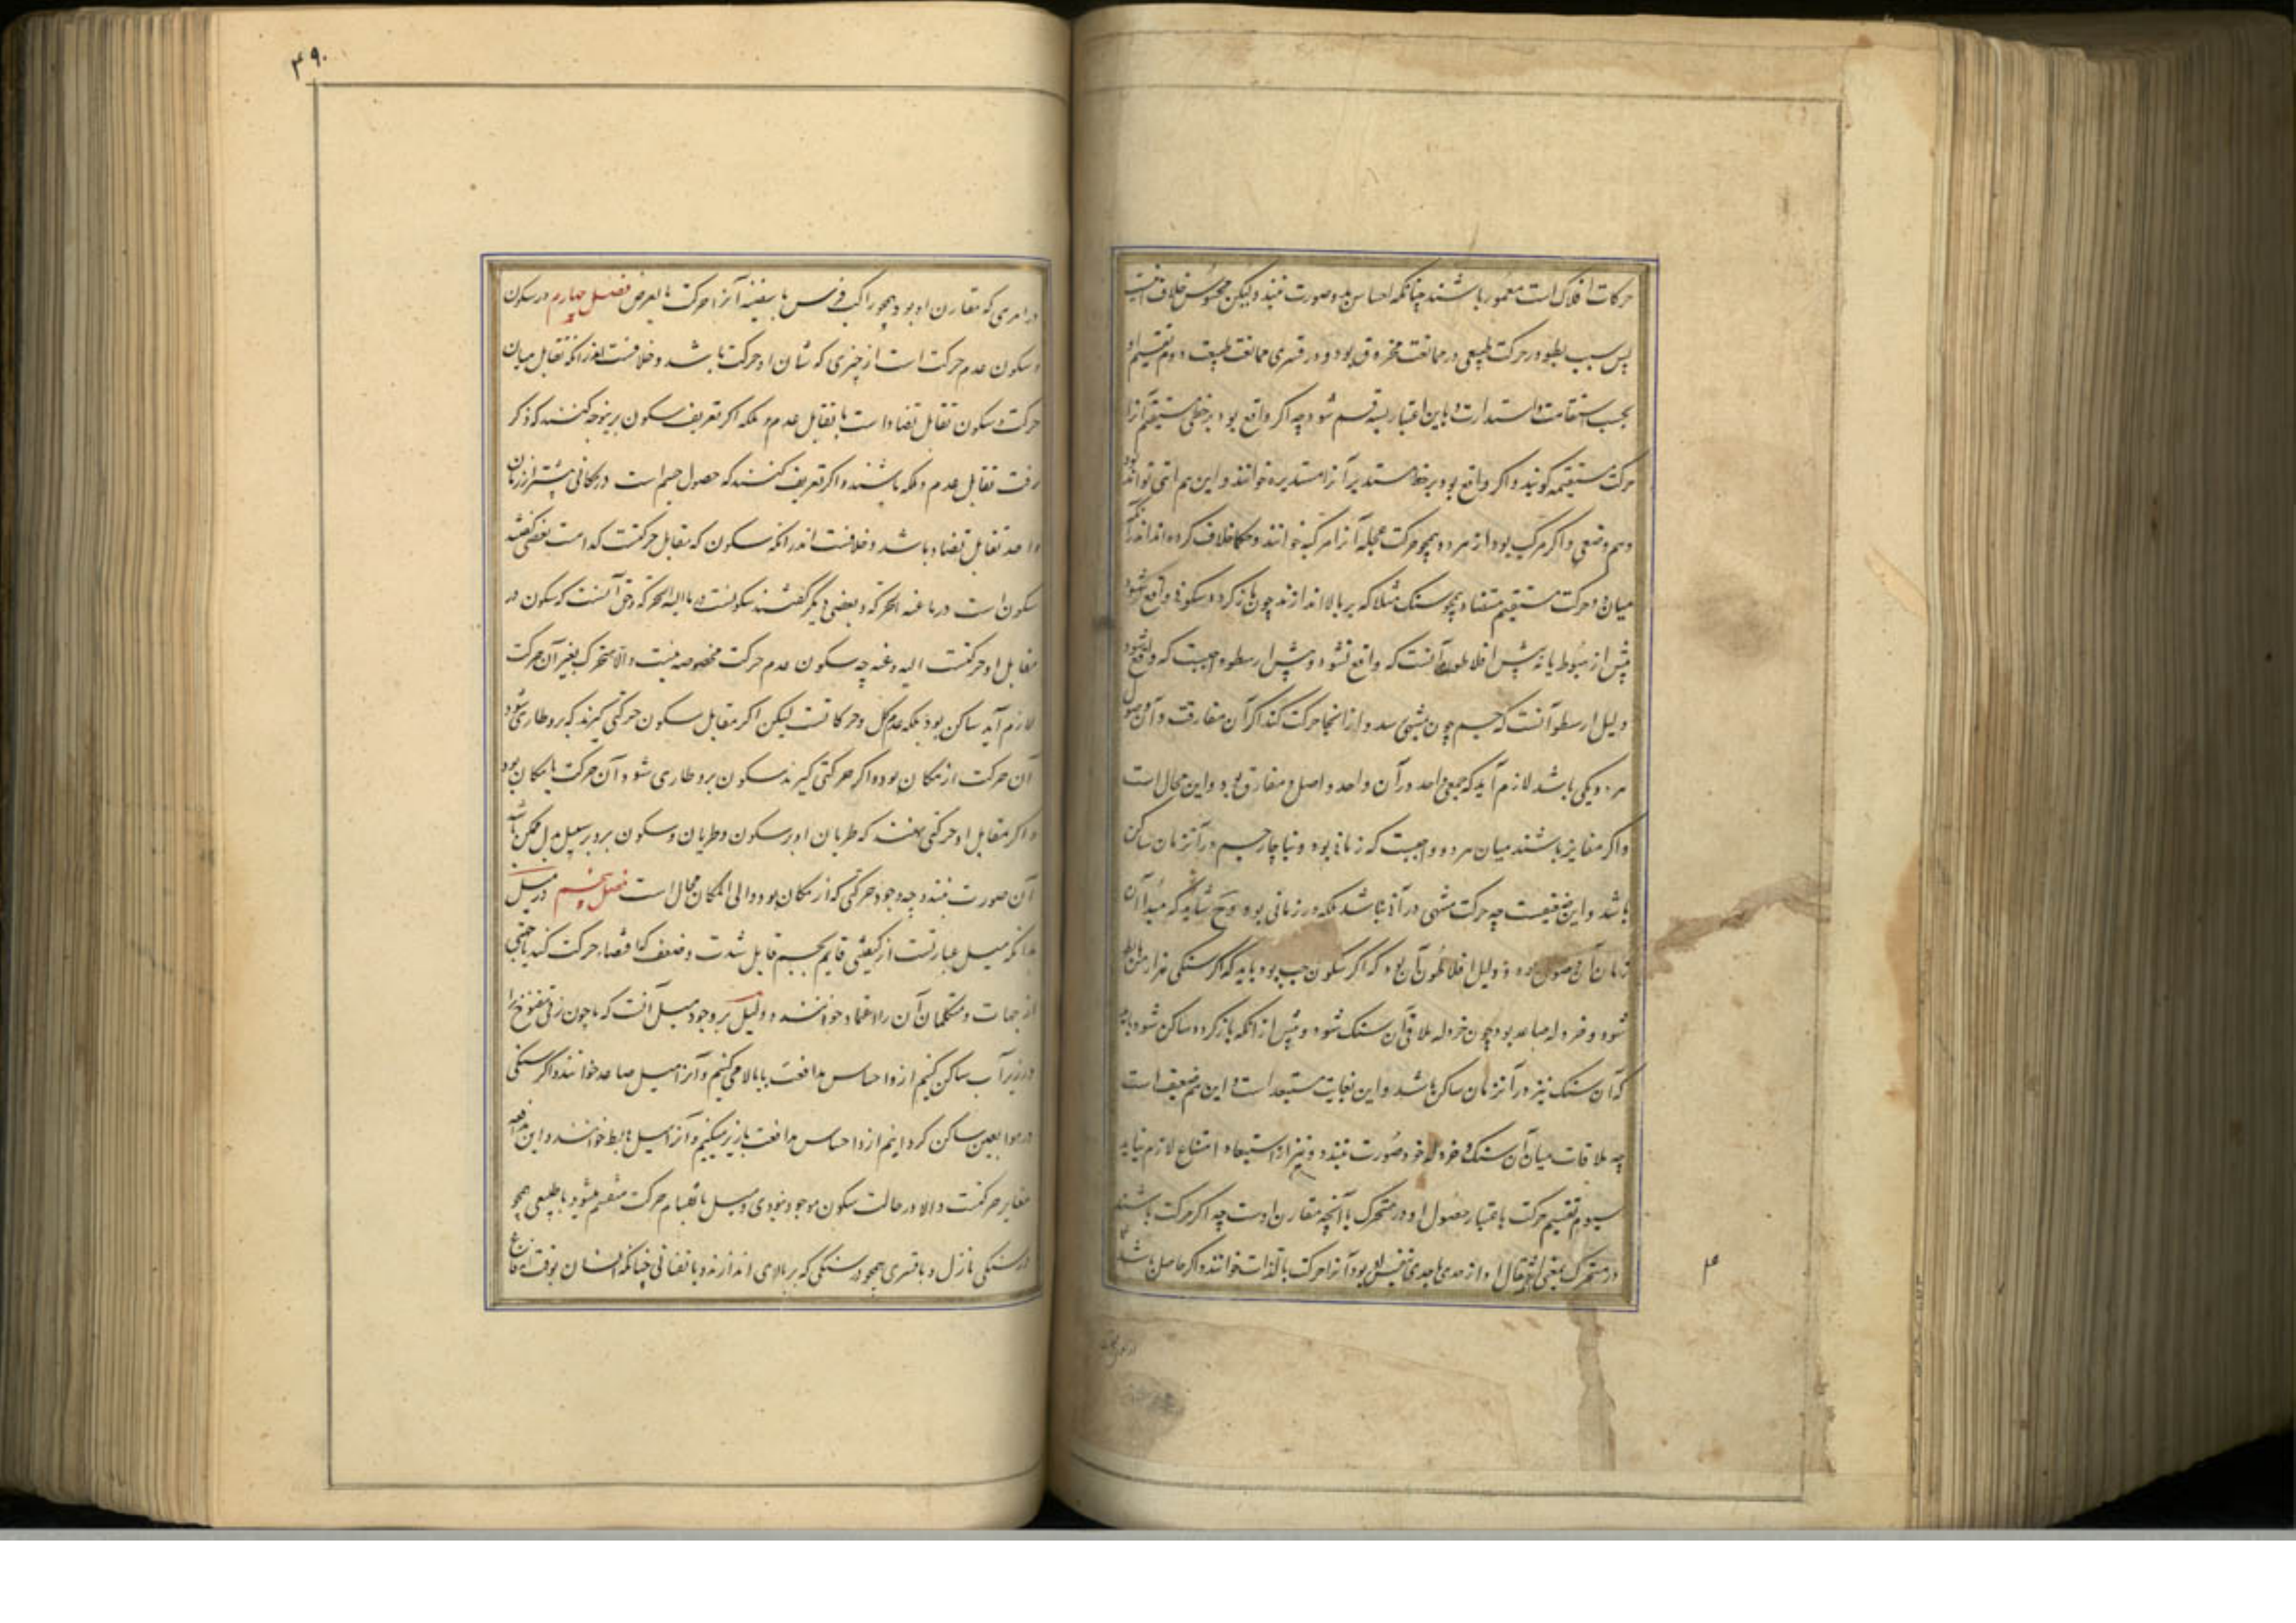 حرکات افلاک است معمور باشند چنانکه احساس بدو صورت نبندد ولیکن محسوس خلاف اینست
پس سبب بطو در حرکت طبیعی در ممانعت مخروق بود و در قسری ممانعت طبیعت دوم تقسیم او
بحسب استقامت و استدارت و باین اعتبار بسه قسم شود چه اگر واقع بود بر خطی مستقیم آنرا
حرکت مستقیمه گویند و اگر واقع بود بر خط مستدیر آنرا مستدیره خوانند و این هم اینی تواند بود
و هم وضعی و اگر مرکب بود از هر دو همچو حرکت عجله آنرا مرکبه خوانند و حکما خلاف کرده‌اند اندر آنکه
میان دو حرکت مستقیم متضاد همچو سنگ مثلا که بر بالا اندازند چون باز گردد سکونی واقع شود
پیش از هبوط یا نه پیش افلاطون آنست که واقع نشود و پیش ارسطو واجبست که واقع شود
دلیل ارسطو آنست که جسم چون بمنتهی رسد و از آنجا حرکت کند اگر آن مفارقت و آن وصول
هر دو یکی باشد لازم آید که جسمی واحد در آن واحد واصل و مفارق بود و این محال است
و اگر مغایر باشند میان هر دو واجبست که زمانی بود و ناچار جسم در آنزمان ساکن
باشد و این ضعیفست چه حرکت منتهی در آن نباشد بلکه در زمانی بود و ح شاید که مبدأ آن
زمان آن وصول بود و دلیل افلاطون آن بود که اگر سکون واجب بود باید که اگر سنگی هزار من هابط
شود و خردله صاعد بود چون خردله ملاقی آن سنگ شود و پیش از آنکه باز گردد ساکن شود باید
که آن سنگ نیز در آنزمان ساکن باشد و این بغایت مستبعد است و این هم ضعیف است
چه ملاقات میان آن سنگ و خردله خود صورت نبندد و نیز از استبعاد امتناع لازم نیاید
سیوم تقسیم حرکت باعتبار حصول او در متحرک یا آنچه مقارن اوست چه اگر حرکت باشند
در متحرک بمعنی انتقال او از حدی بحدی نفس او بود آنرا حرکت بالذات خوانند و اگر حاصل باشد
۴
۴۹۰
در امری که مقارن او بود همچو راکب فرس یا سفینه آنرا حرکت بالعرض فصل چهارم در سکون
و سکون عدم حرکت است از چیزی که شان او حرکت باشد و خلافست اندر آنکه تقابل میان
حرکت و سکون تقابل تضاد است یا تقابل عدم و ملکه اگر تعریف سکون برینوجه کنند که ذکر
رفت تقابل عدم و ملکه باشند و اگر تعریف کنند که حصول جسم است در مکانی بیشتر از زمان
واحد تقابل تضاد باشد و خلافست اندر آنکه سکون که مقابل حرکتست کدامست بعضی گفتند
سکون است در ما عنه الحرکه و بعضی دیگر گفتند سکونست در ما الیه الحرکه و حق آنست که سکون در
مقابل او حرکتست الیه و عنه چه سکون عدم حرکت مخصوصه نیست و الا متحرک بغیر آن حرکت
لازم آید ساکن بود بلکه عدم کل و حرکاتست لیکن اگر مقابل سکون حرکتی گیرند که برو طاری شود
آن حرکت از مکان بود و اگر حرکتی گیرند سکون برو طاری شود آن حرکت بامکان بود
و اگر مقابل او حرکتی نهند که طریان او بر سکون و طریان و سکون برو بر سبیل بدل ممکن باشد
آن صورت نبندد چه وجود حرکتی که از مکان بود و الی المکان محال است فصل پنجم در میل
بدانکه میل عبارتست از کیفیتی قایم بجسم قابل شدت و ضعف که اقتضاء حرکت کند بجهتی
از جهات و متکلمان آن را اعتماد خوانند و دلیل بر وجود میل آنست که ما چون زقی منفوخ را
در زیر آب ساکن کنیم ازو احساس مدافعت ببالا می‌کنیم و آنرا میل صاعد خوانند و اگر سنگی
در هوا بعین ساکن گردانیم ازو احساس مدافعت بزیر میکنیم و آنرا میل هابط خوانند و این مدافعه
مغایر حرکتست و الا در حالت سکون موجود نبودی و میل بانقسام حرکت منقسم میشود یا طبیعی همچو
در سنگی نازل و یا قسری همچو در سنگی که بر بالای اندازند و یا نفسانی چنانکه انسان بوقت